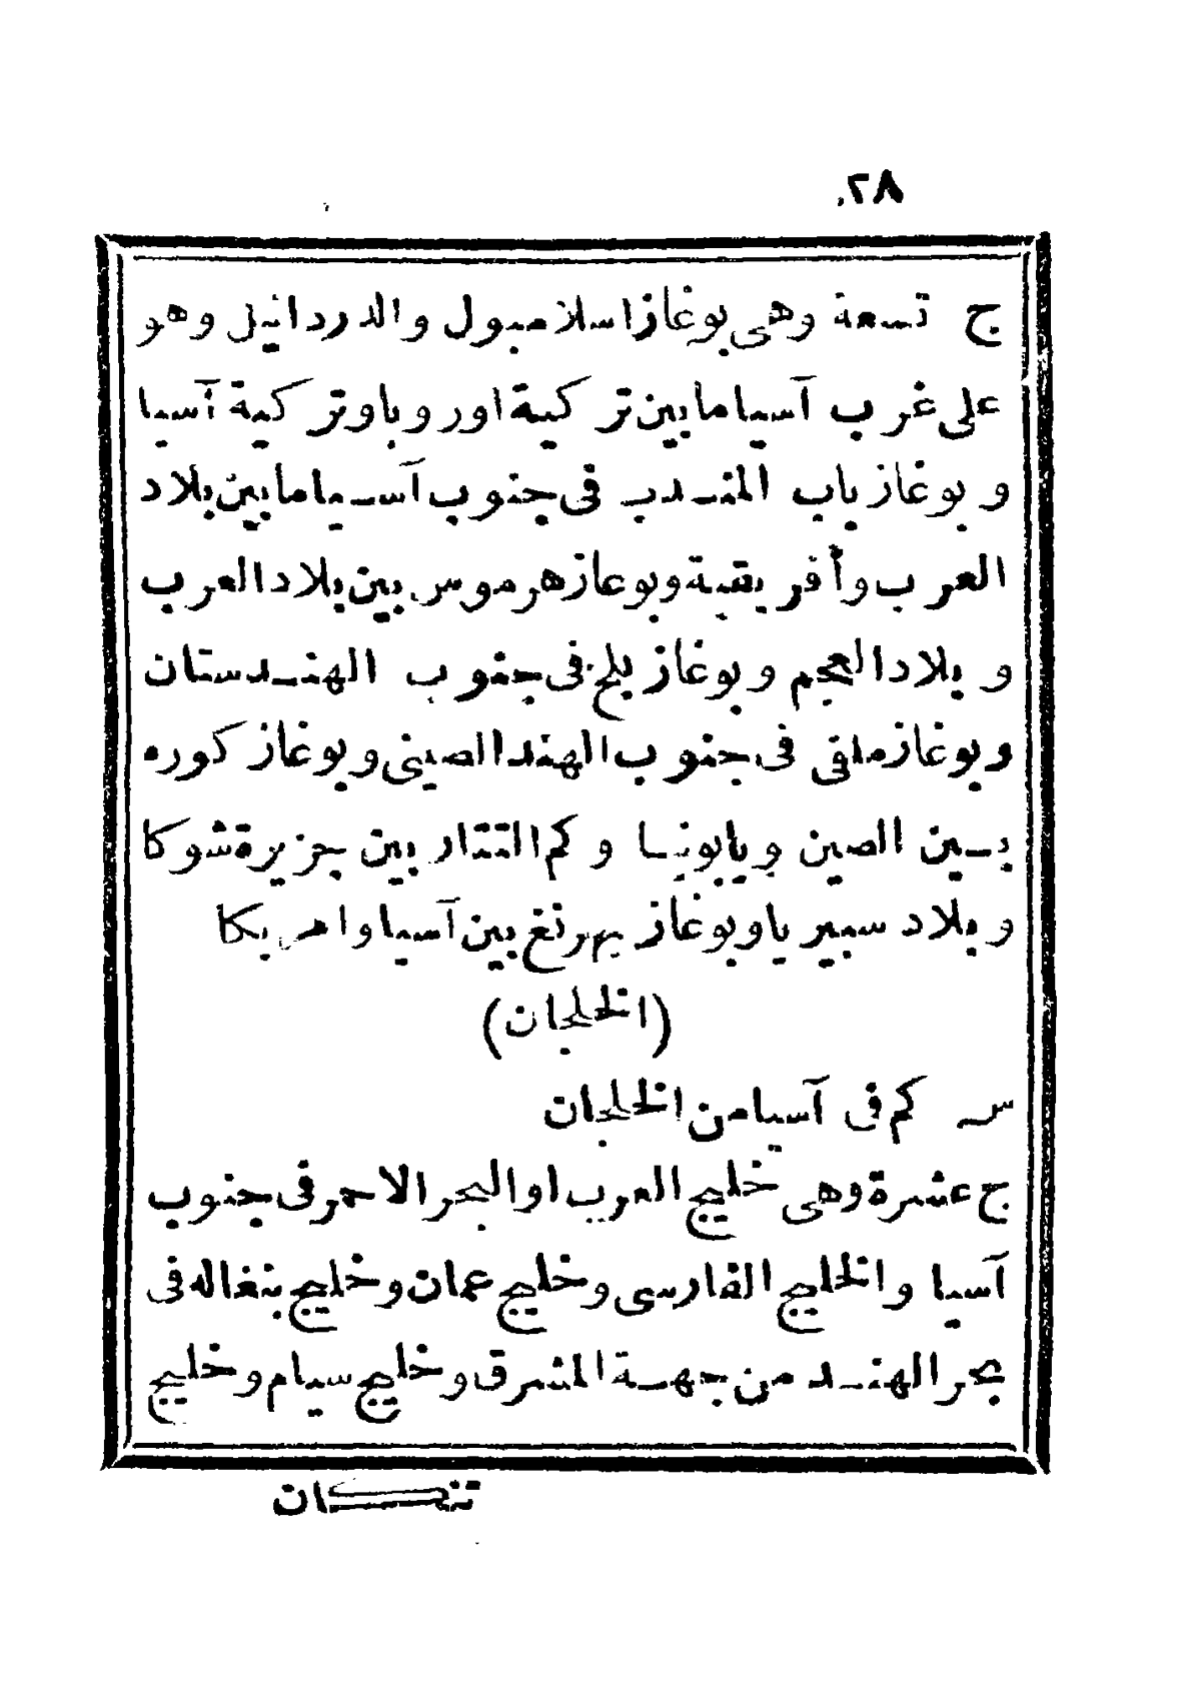 ٢٨
ج تسعة وهى بوغاز اسلامبول والدردانيل وهو
على غرب آسيا مابين تركية اوروبا وتركية آسيا
وبوغاز باب المندب فى جنوب آسيا مابين بلاد
العرب وأفريقية وبوعاز هرموس بين بلاد العرب
وبلاد العجم وبوغاز بلخ فى جنوب الهندستان
وبوغاز ملقى فى جنوب الهند الصينى وبوغاز كوره
بين الصين ويابونيا وكم التتار بين جزيرة شوكا
وبلاد سبيريا وبوغاز بهرنغ بين آسيا وامريكا
(الخلجان)
س كم فى آسيا من الخلجان
ج عشرة وهى خليج العرب او البحر الاحمر فى جنوب
آسيا والخليج الفارسى وخليج عمان وخليج بنغاله فى
بحر الهند من جهة المشرق وخليج سيام وخليج
تنكان